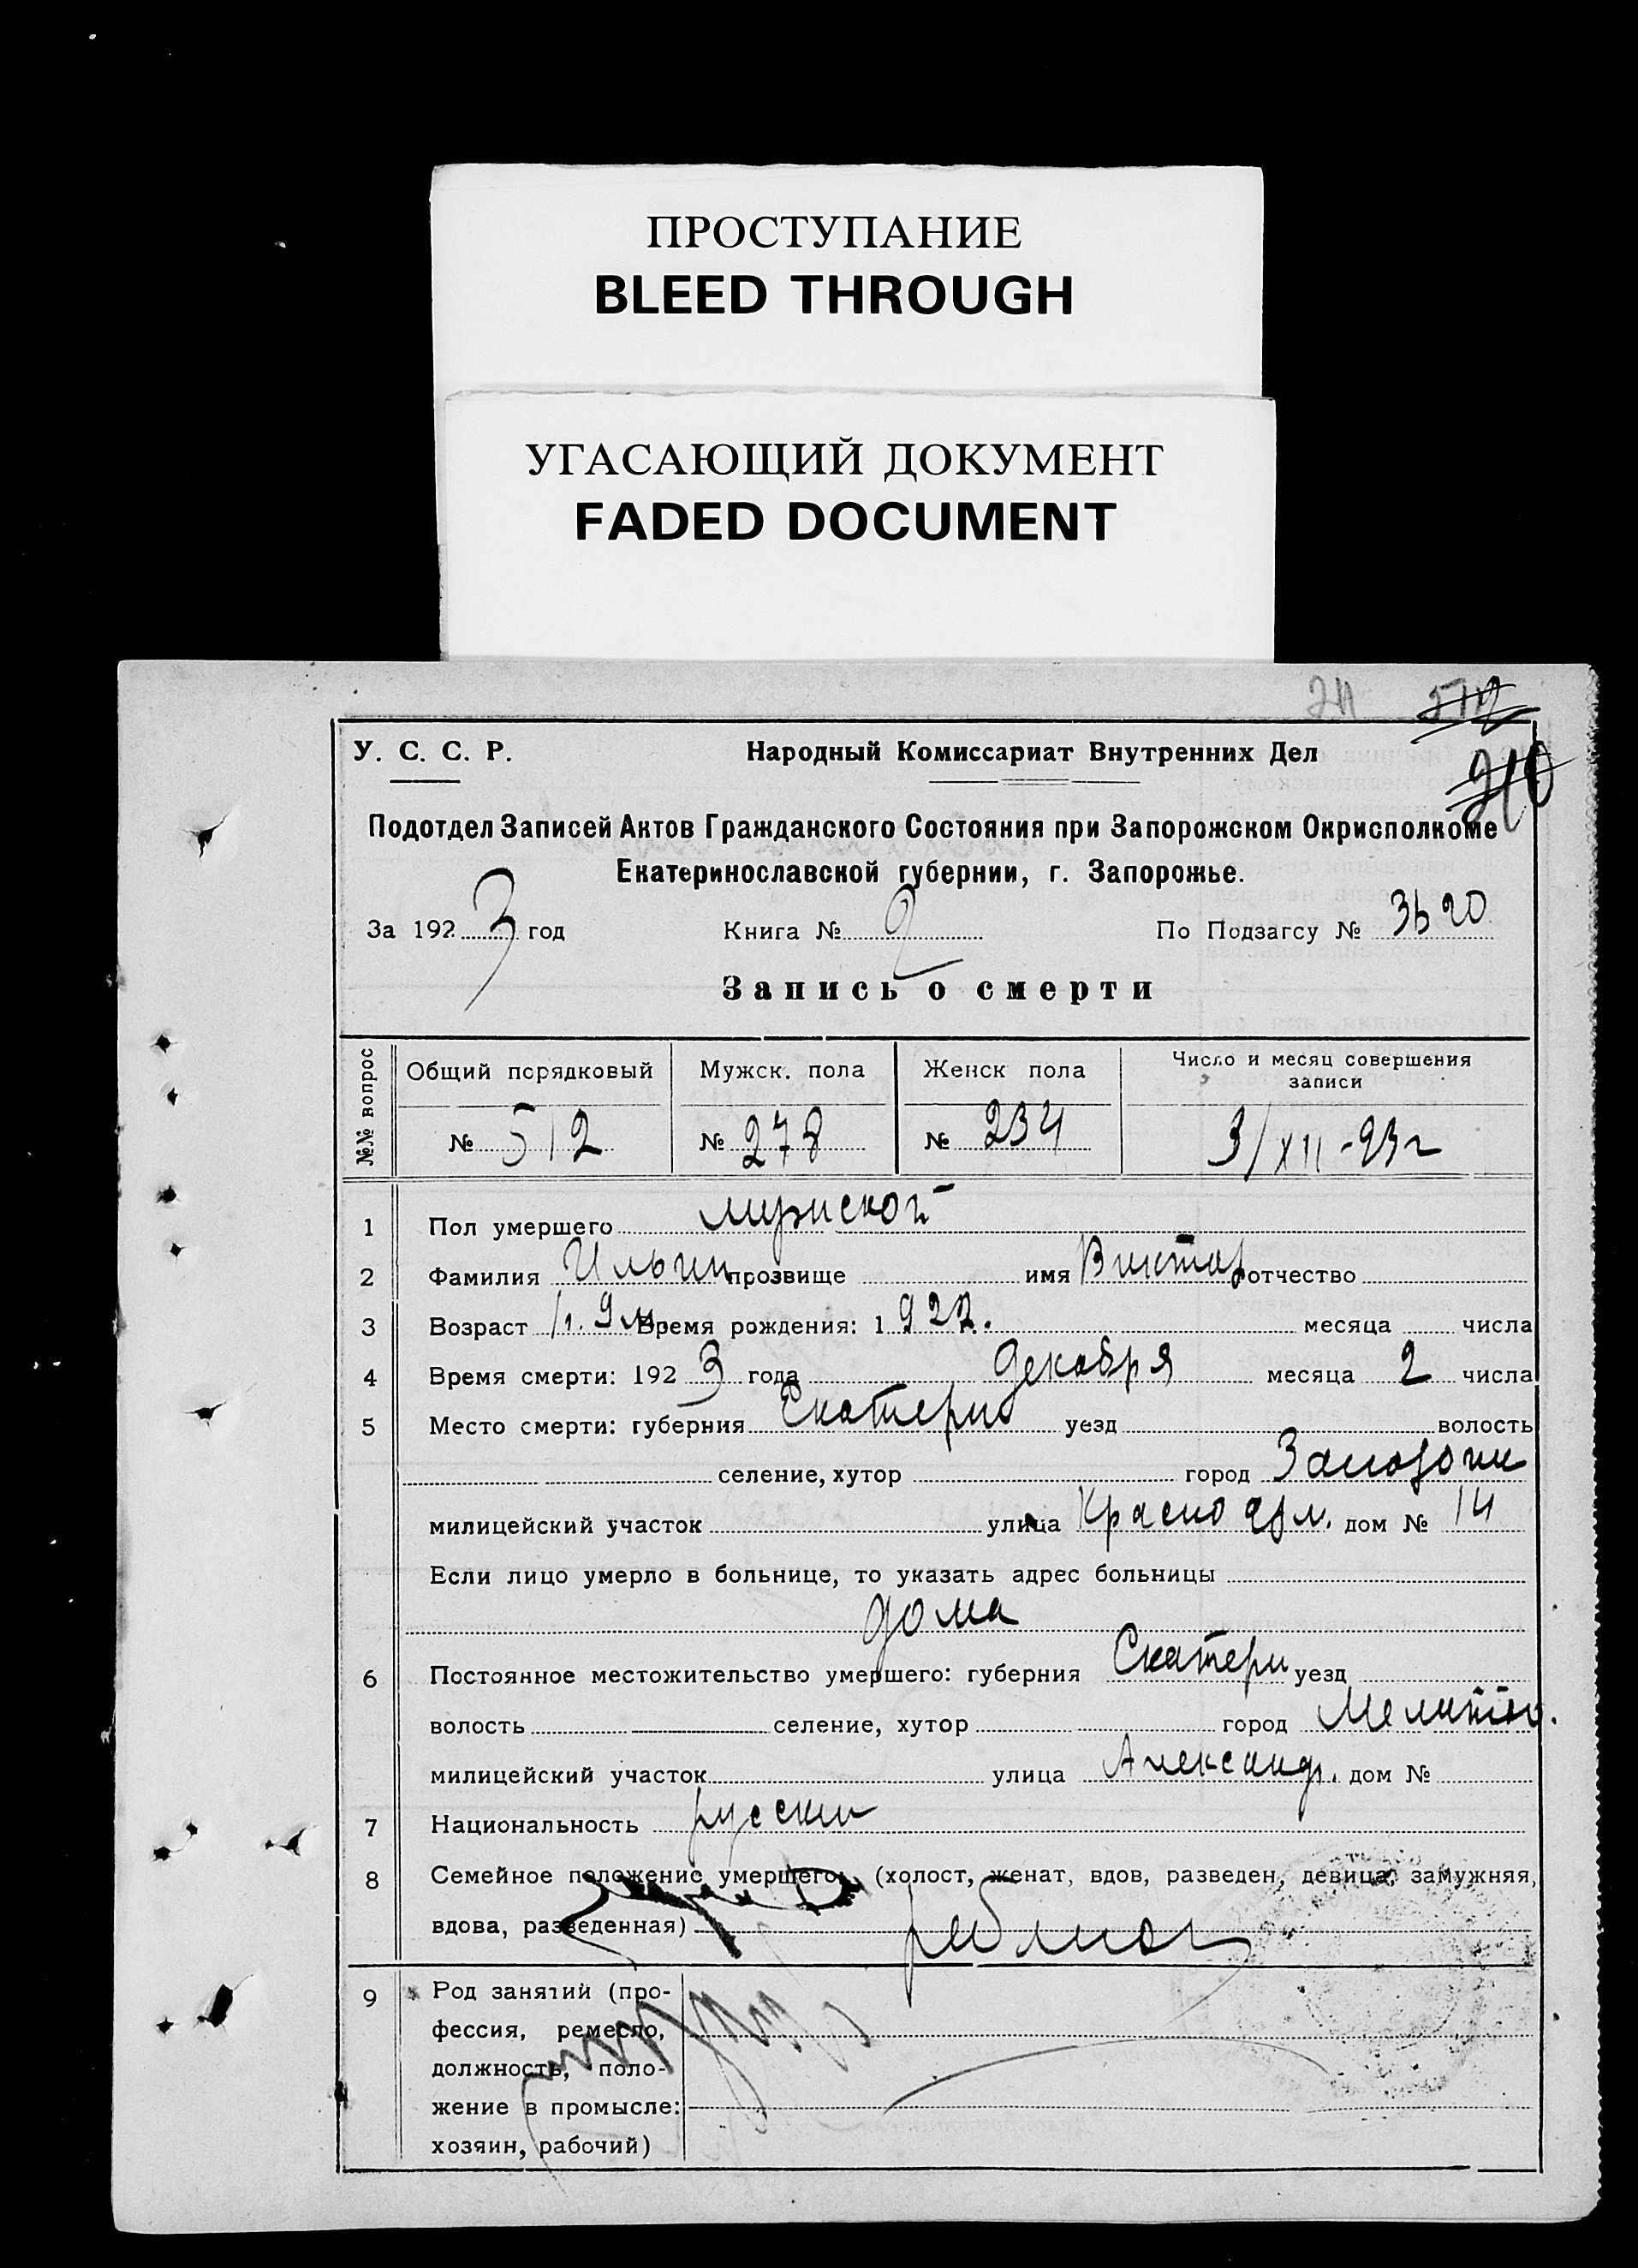 ПРОСТУПАНИЕ
BLEED THROUGH
УГАСАЮЩИЙ ДОКУМЕНТ
FADED DOCUMENT
211 512
210
У. С. С. Р. Народный Комиссариат Внутренних Дел
Подотдел Записей Актов Гражданского Состояния при Запорожском Окрисполкоме
Екатеринославской губернии, г. Запорожье.
За 1923 год Книга № 2 По Подзагсу № 3620
Запись о смерти
№№ вопрос Общий порядковый Мужск. пола Женск пола Число и месяц совершения
записи
№ 512 № 278 № 234 3/XII-23г
1 Пол умершего мужской
2 Фамилия Ильин прозвище имя Виктор отчество
3 Возраст 1г. 9м. Время рождения: 1922. месяца числа
4 Время смерти: 1923 года декабря месяца 2 числа
5 Место смерти: губерния Екатерино уезд волость
селение, хутор город Запорож
милицейский участок улица Красно арм. дом № 14
Если лицо умерло в больнице, то указать адрес больницы
дома
6 Постоянное местожительство умершего: губерния Екатери уезд
волость селение, хутор город Мелитоп.
милицейский участок улица Александр. дом №
7 Национальность русский
8 Семейное положение умершего: (холост, женат, вдов, разведен, девица, замужняя,
вдова, разведенная) ребенок
9 Род занятий (про-
фессия, ремесло,
должность, поло-
жение в промысле:
хозяин, рабочий)